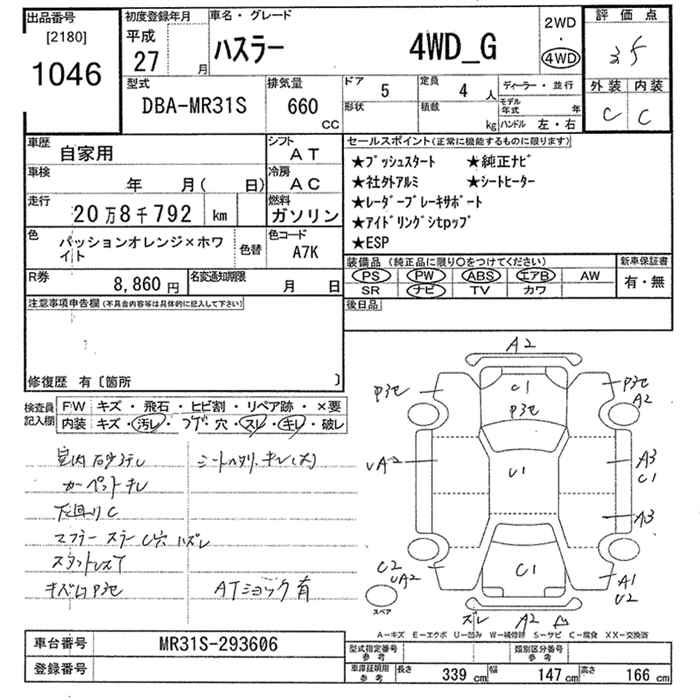 出品番号
[2180]
1046
初度登録年月
平成
27 月
車名・グレード
ハスラー 4WD_G
2WD
・
4WD
評価点
3.5
外装 内装
C C
型式
DBA-MR31S
排気量
660
CC
ドア 5
形状
定員 4 人
積載 kg
ディーラー・並行
モデル年式 年
ハンドル 左・右
車歴 自家用
シフト AT
車検 年 月( 日)
冷房 AC
走行 20万8千792 km
燃料 ガソリン
色 パッションオレンジ×ホワイト
色替
色コード A7K
R券 8,860円
名変通知期限 月 日
セールスポイント(正常に機能するものに限ります)
★プッシュスタート ★純正ナビ
★社外アルミ ★シートヒーター
★レーダーブレーキサポート
★アイドリングシtpップ
★ESP
装備品 (純正品に限り○をつけてください)
PS PW ABS エアB AW
SR ナビ TV カワ
新車保証書
有・無
後日品
注意事項申告欄(不具合内容等は具体的に記入して下さい)
修復歴 有〔箇所 〕
検査員記入欄
F/W キズ・飛石・ヒビ割・リペア跡・×要
内装 キズ・汚レ・コゲ・穴・スレ・キレ・破レ
カーペットキレ
下廻りC
キズ凹P3セ
ATショック有
A2
C1
P3セ
P3セ
P3セ
A2
UA2
U1
A3
C1
A3
C2
UA2
C1
A1
U2
ズレ A2 凸
スペア
A-キズ E-エクボ U-凹み W-補修跡 S-サビ C-腐食 XX-交換済
車台番号 MR31S-293606
登録番号
型式指定番号参考
類別区分番号参考
車庫証明用参考 長さ 339 cm 幅 147 cm 高さ 166 cm